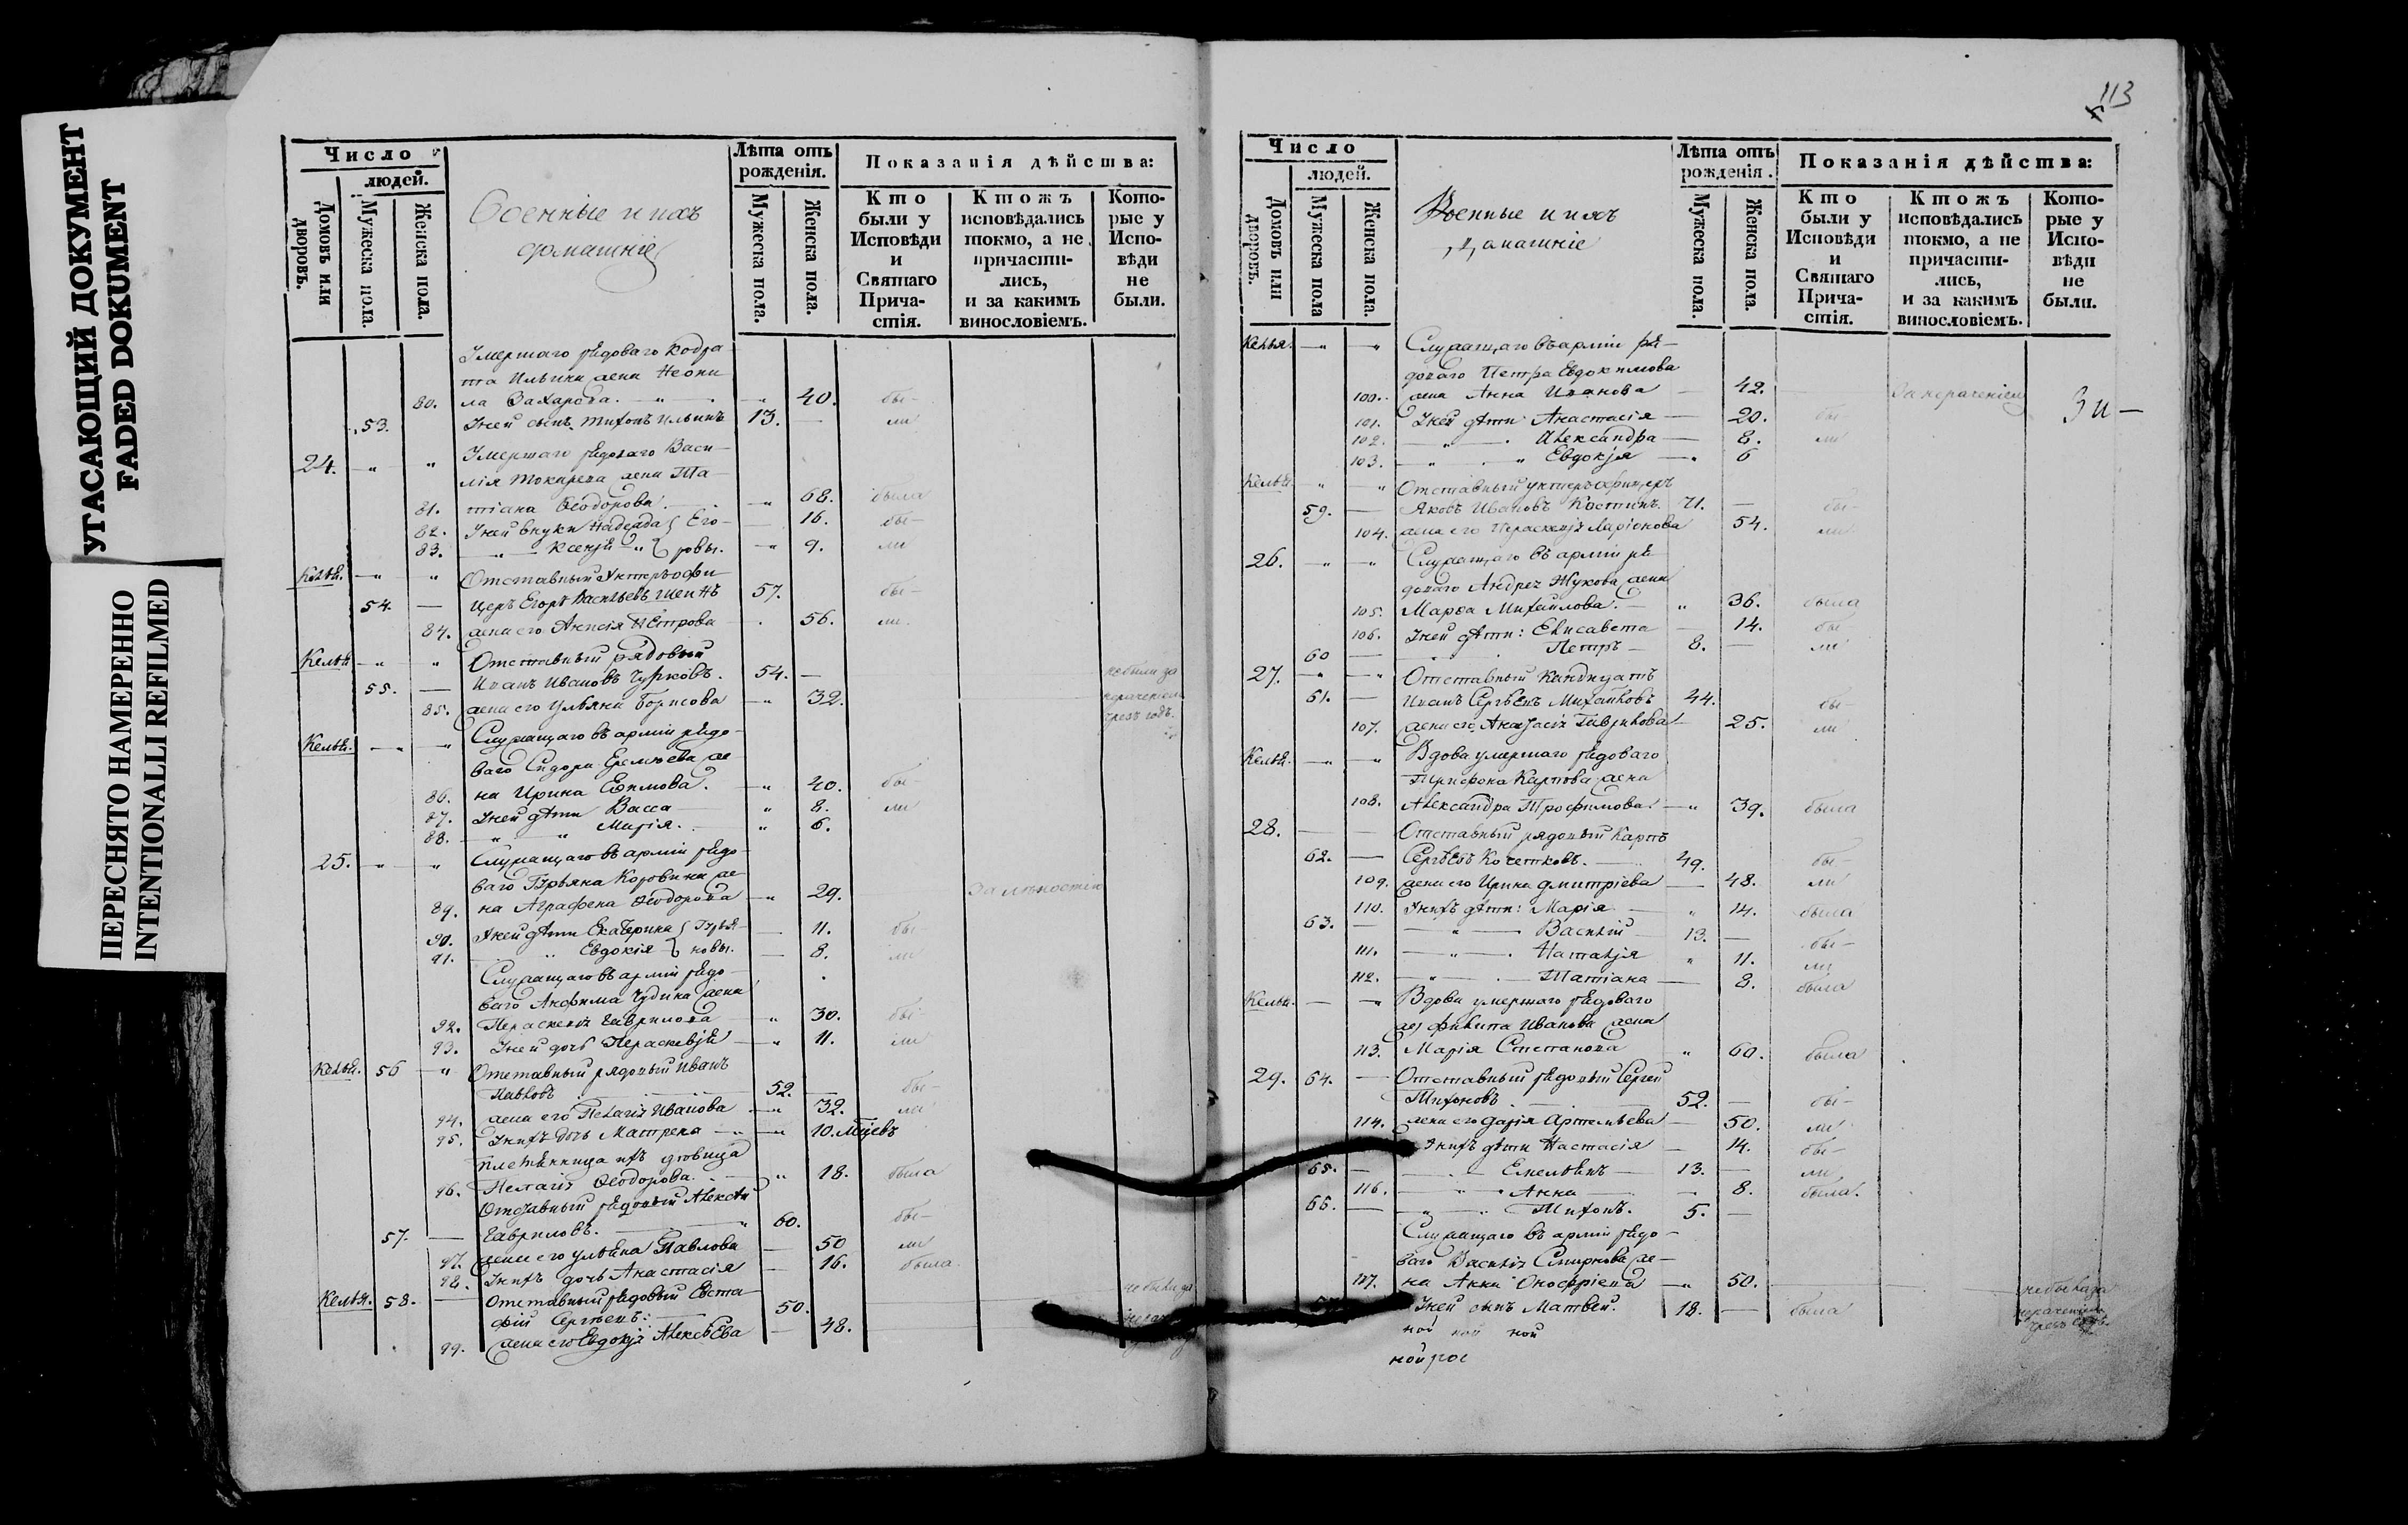 УГАСАЮЩИЙ ДОКУМЕНТ
FADED DOKUMENT
ПЕРЕСНЯТО НАМЕРЕННО
INTENTIONALLI REFILMED
Число
людей.
Домовъ или дворовъ.
Мужеска пола.
Женска пола.
Военные и ихъ
домашніе
Лѣта отъ рожденія.
Мужеска пола.
Женска пола.
Показанія дѣйства:
Кто были у Исповѣди и Святаго Причастія.
Ктожъ исповѣдались токмо, а не причастились, и за какимъ винословіемъ.
Которые у Исповѣди не были.
Умершаго рѣдоваго Кодра-
та Ильина жена Неони-
80. ла Захарова. 40. бы-
53. У ней сынъ Тихонъ Ильинъ 13. ли
24. Умершаго рѣдоваго Васи-
лія Токарева жена Та-
81. тіана Ѳеодорова. 68. была
82. У ней внуки Надежда Его- 16. бы-
83. Ксенія ровы. 9. ли
Келья. Отставный Унтеръ офи-
54. церъ Егоръ Васильевъ 57. бы-
84. жена его Анисія Петрова 56. ли
Келья Отставный рядовый
55. Иванъ Ивановъ Чурковъ. 54. не были за
85. жена его Ульяна Борисова 32. нерачениемъ
Келья. Служащаго въ арміи рѣдо-
ваго Сидора Еремѣева же-
86. на Ирина Ефимова. 40. бы-
87. У ней дѣти Васса 8. ли
88. Марія. 6.
25. Служащаго въ арміи рѣдо-
ваго Гурьяна Коровина же-
89. на Аграфена Ѳеодорова 29. За лѣностію
90. У ней дѣти Екатерина Гурья- 11. бы
91. Евдокія новы. 8. ли
Служащаго въ арміи рѣдо-
ваго Анфима Чудина жена
92. Параскевія Гаврилова 30. бы
93. У ней дочь Параскевія 11. ли
Келья. 56 Отставный рядовый Иванъ
Павловъ 52. бы-
94. жена его Пелагія Иванова 32. ли
95. У нихъ дочь Матрена 10. мѣцевъ
племянница ихъ дѣвица
96. Пелагія Ѳеодорова. 18. была
Отставный рѣдовый Алексѣй
57. Гавриловъ. 60. бы-
97. жена его Ульяна Павлова 50 ли
98. У нихъ дочь Анастасія 16. была.
Келья. 58. Отставный рѣдовый Евста-
фій Сергѣевъ: 50. не были за
99. жена его Евдокія Алексѣева 48.
113
Число
людей.
Домовъ или дворовъ.
Мужеска пола
Женска пола.
Военные и ихъ
домашніе
Лѣта отъ рожденія.
Мужеска пола.
Женска пола.
Показанія дѣйства:
Кто были у Исповѣди и Святаго Причастія.
Ктожъ исповѣдались токмо, а не причастились, и за какимъ винословіемъ.
Которые у Исповѣди не были.
Келья. Служащаго въ арміи рѣ-
доваго Петра Евдокимова
100. жена Анна Иванова 42. За нераченіем
101. У ней дѣти Анастасія 20. бы
102. Александра 8. ли
103. Евдокія 6
Келья. Отставный унтеръ офицеръ
59. Яковъ Ивановъ Костинъ. 71. бы-
104. жена его Параскевія Ларіонова 54. ли
26. Служащаго въ арміи рѣ-
доваго Андрея Жукова жена
105. Марѳа Михайлова. 36. была
106. У ней дѣти: Елисавета 14. бы
60 Петръ 8. ли
27. Отставный Кандидатъ
61. Иванъ Сергѣевъ Михайловъ 44. бы-
107. жена его Анастасія Гаврилова 25. ли
Келья. Вдова умершаго рѣдоваго
Трифона Карпова жена
108. Александра Трофимова. 39. была
28. Отставный рядовый Карпъ
62. Сергѣевъ Кочетковъ. 49. бы-
109. жена его Ирина Дмитріева 48. ли
110. У нихъ дѣти: Марія 14. была
63. Василій 13. бы-
111. Наталія 11. ли
112. Татіана 8. была
Келья. Вдова умершаго рѣдоваго
Филипа Иванова жена
113. Марія Степанова 60. была
29. 64. Отставный рѣдовый Сергей
Тихоновъ 52. бы-
114. жена его Дарія Артемьева 50. ли
У нихъ дѣти Настасія 14. бы-
65. Емельянъ 13. ли
116. Анна 8. была.
66. Тихонъ. 5.
Служащаго въ арміи рѣдо-
ваго Василія Смирнова же-
117. на Анна Оноѳріева 50. не была за
У ней сынъ Матвей. 18. была нерачением
ной ной ной